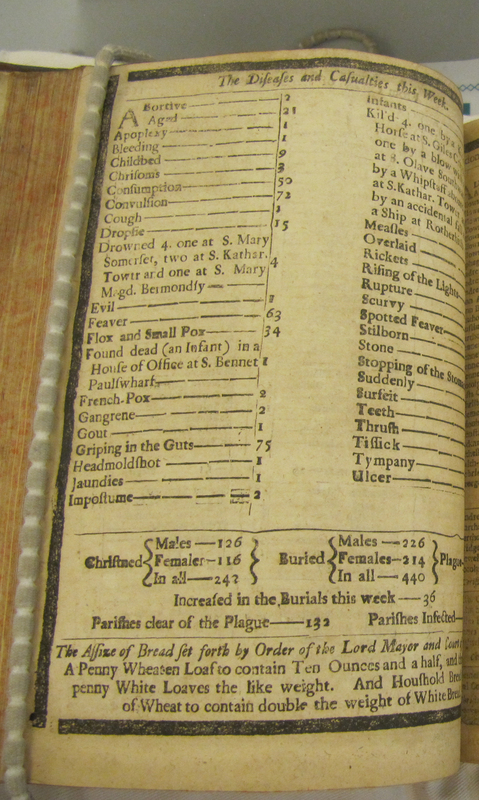 The Diſeaſes and Caſualties this Week.
Abortive 2
Aged 21
Apoplexy 1
Bleeding 1
Childbed 9
Chriſoms 3
Conſumption 50
Convulſion 72
Cough 1
Dropſie 15
Drowned 4. one at S. Mary
Somerſet, two at S. Kathar.
Tower and one at S. Mary 4
Magd. Bermondſy
Evil 1
Feaver 63
Flox and Small Pox 34
Found dead (an Infant) in a
Houſe of Office at S. Bennet 1
Paulſwharf
French-Pox 2
Gangrene 2
Gout 1
Griping in the Guts 75
Headmoldſhot 1
Jaundies 1
Impoſtume 2
Infants
Kil'd 4. one by a
Horſe at S. Giles
one by a blow
at S. Olave
by a Whipſtaff
at S. Kathar. Tower
by an accidental
a Ship at
Meaſles
Overlaid
Rickets
Riſing of the Lights
Rupture
Scurvy
Spotted Feaver
Stilborn
Stone
Stopping of the
Suddenly
Surfeit
Teeth
Thruſh
Tiſſick
Tympany
Ulcer
Chriſtned
Males 126
Females 116
In all 242
Buried
Males 226
Females 214
In all 440
Plague
Increaſed in the Burials this week 36
Pariſhes clear of the Plague 132 Pariſhes Infected
The Aſſize of Bread ſet forth by Order of the Lord Mayor and
A Penny Wheaten Loaf to contain Ten Ounces and a half, and
penny White Loaves the like weight. And Houſhold
of Wheat to contain double the weight of White